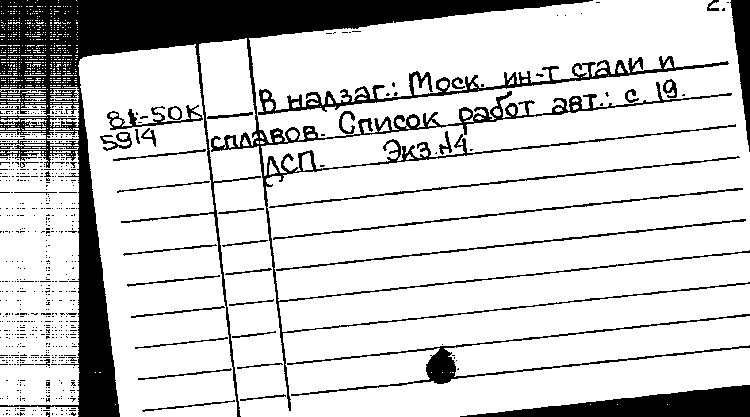 2.
81-50К
5914
В надзаг.: Моск. ин-т стали и
сплавов. Список работ авт.: с. 19.
ДСП. Экз.№4.